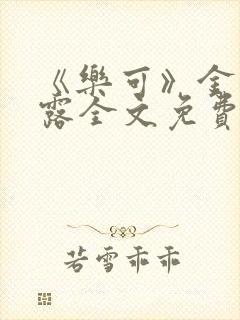 《樂可》金
露全文免費
若雪乖乖